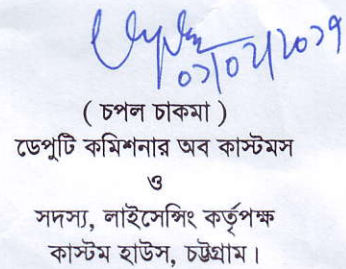 ০১/০২/২০১৭
( চপল চাকমা )
ডেপুটি কমিশনার অব কাস্টমস
ও
সদস্য, লাইসেন্সিং কর্তৃপক্ষ
কাস্টম হাউস, চট্টগ্রাম।